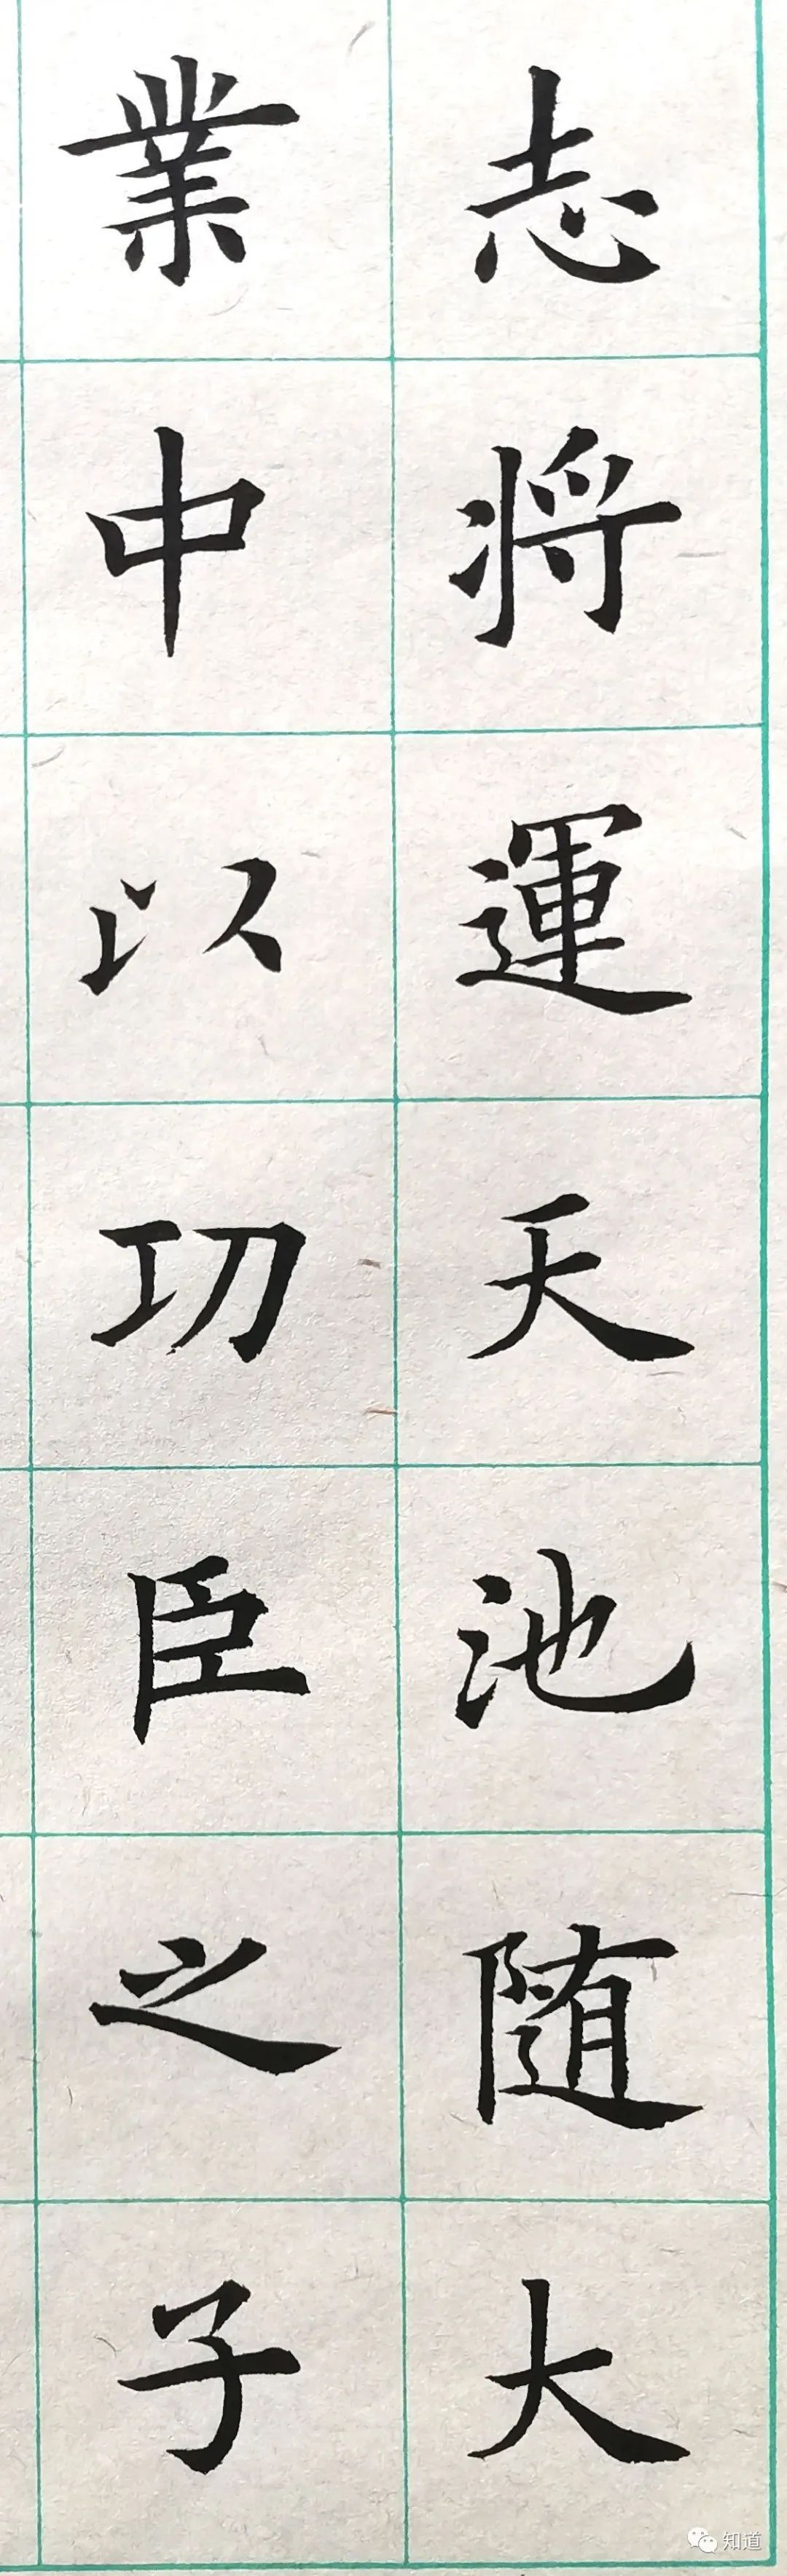 志将運天池随大
業中以功臣之子
知道